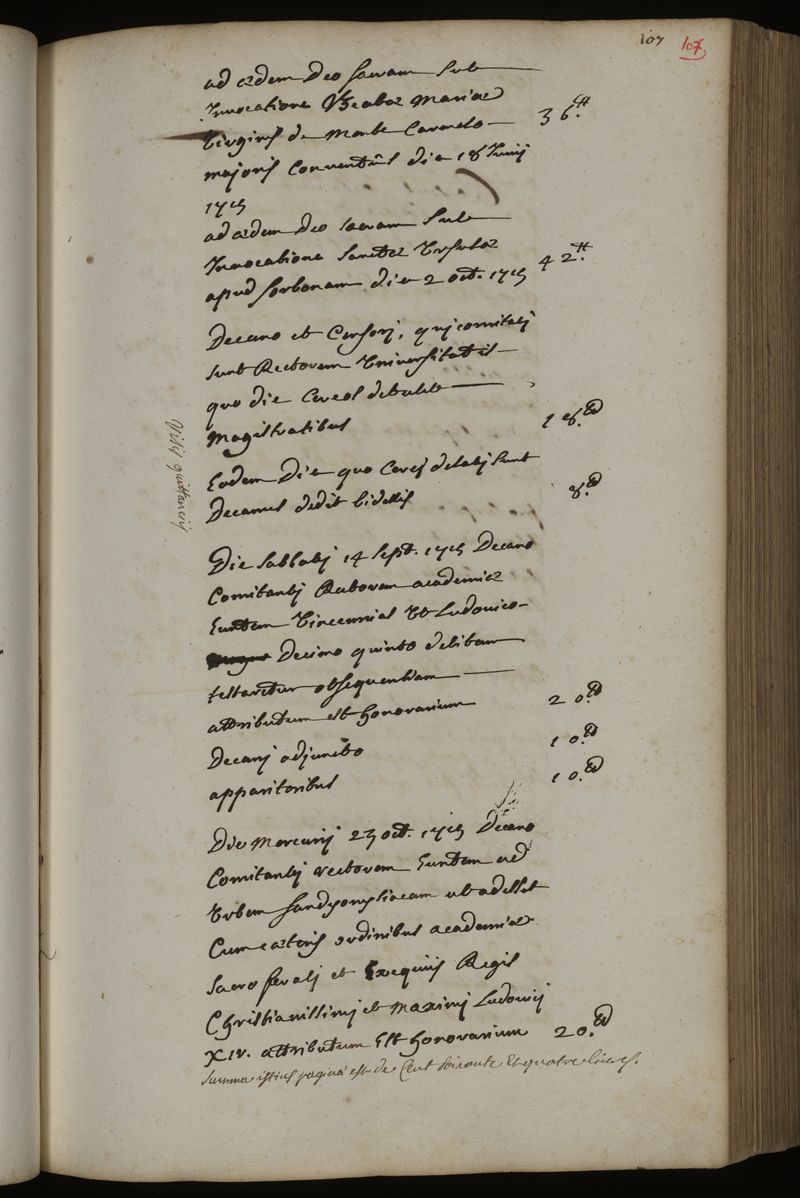 107 107
ad ædem Deo sacram sub
Invocatione Beatæ Mariæ
Virginis de Monte Carmelo 36.tt
majoris Conventûs die 18 Junij
1715
ad ædem Deo sacram sub
Invocatione Sanctæ Ursulæ
apud Sorbonam die 2 oct. 1715 42.tt
Decano et Censori, qui comitatj
sunt Rectorem Universitatis
quo die Cereos detulit
Magistratibus 18.tt
Visis quittancijs
Eodem Die quo Cerej delatj sunt
Decanus dedit bidellis 8.tt
Die Sabbatj 14 Sept. 1715 Decano
Comitantj Rectorem academiæ
Euntem Vincennias Ut Ludovico
Decimo quinto debitam
testaretur obsequentiam
attributum est honorarium 20.tt
Decanj adjuncto 10.tt
apparitoribus 10.tt
Die Mercurij 23 oct. 1715 Decano
Comitantj rectorem Euntem ad
Urbem Sandyonysiacam ut adesset
Cum cæteris ordinibus academiæ
Sacro feralj et Exequiis Regis
Christianissimj et Maximj Ludovicj
XIV. attributum Est honorarium 20.tt
Summa istius paginæ est de Cent soixante Et quatre livres.